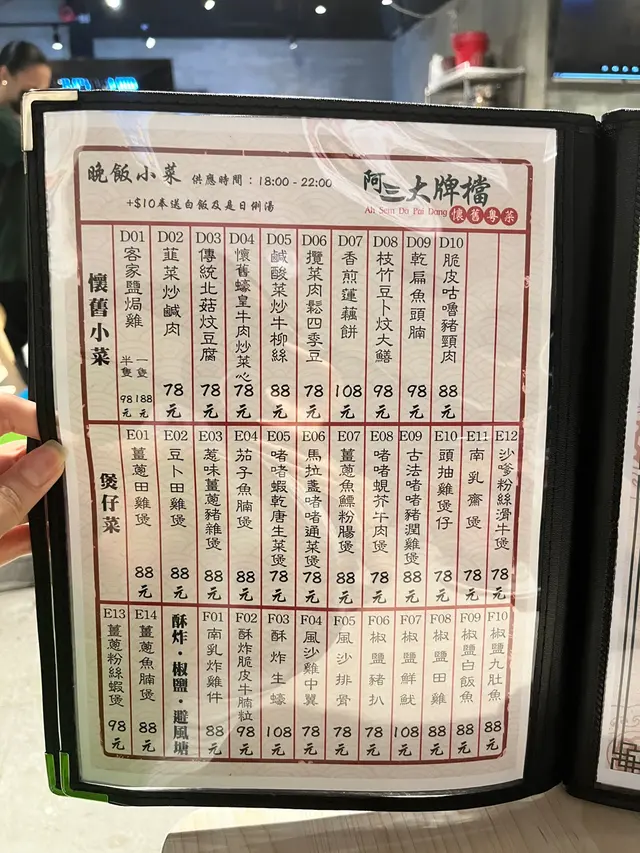 晚飯小菜 供應時間：18:00 - 22:00
+$10奉送白飯及是日例湯
阿三大牌檔
Ah Sam Da Pai Dang 懷舊粵菜
懷舊小菜
D01 客家鹽焗雞 半隻98元 一隻188元
D02 韮菜炒鹹肉 78元
D03 傳統北菇炆豆腐 78元
D04 懷舊蠔皇牛肉炒菜心 78元
D05 鹹酸菜炒牛柳絲 88元
D06 欖菜肉鬆四季豆 78元
D07 香煎蓮藕餅 108元
D08 枝竹豆卜炆大鱔 98元
D09 乾扁魚頭腩 98元
D10 脆皮咕嚕豬頸肉 88元
煲仔菜
E01 薑蔥田雞煲 88元
E02 豆卜田雞煲 88元
E03 惹味薑蔥豬雜煲 88元
E04 茄子魚腩煲 88元
E05 啫啫蝦乾唐生菜煲 78元
E06 馬拉盞啫啫通菜煲 78元
E07 薑蔥魚鰾粉腸煲 88元
E08 啫啫蜆芥牛肉煲 78元
E09 古法啫啫豬潤雞煲 88元
E10 頭抽雞煲仔 88元
E11 南乳齋煲 78元
E12 沙嗲粉絲滑牛煲 78元
E13 薑蔥粉絲蝦煲 98元
E14 薑蔥魚腩煲 88元
酥炸・椒鹽・避風塘
F01 南乳炸雞件 88元
F02 酥炸脆皮牛腩粒 98元
F03 酥炸生蠔 108元
F04 風沙雞中翼 78元
F05 風沙排骨 78元
F06 椒鹽豬扒 78元
F07 椒鹽鮮魷 108元
F08 椒鹽田雞 88元
F09 椒鹽白飯魚 88元
F10 椒鹽九肚魚 88元